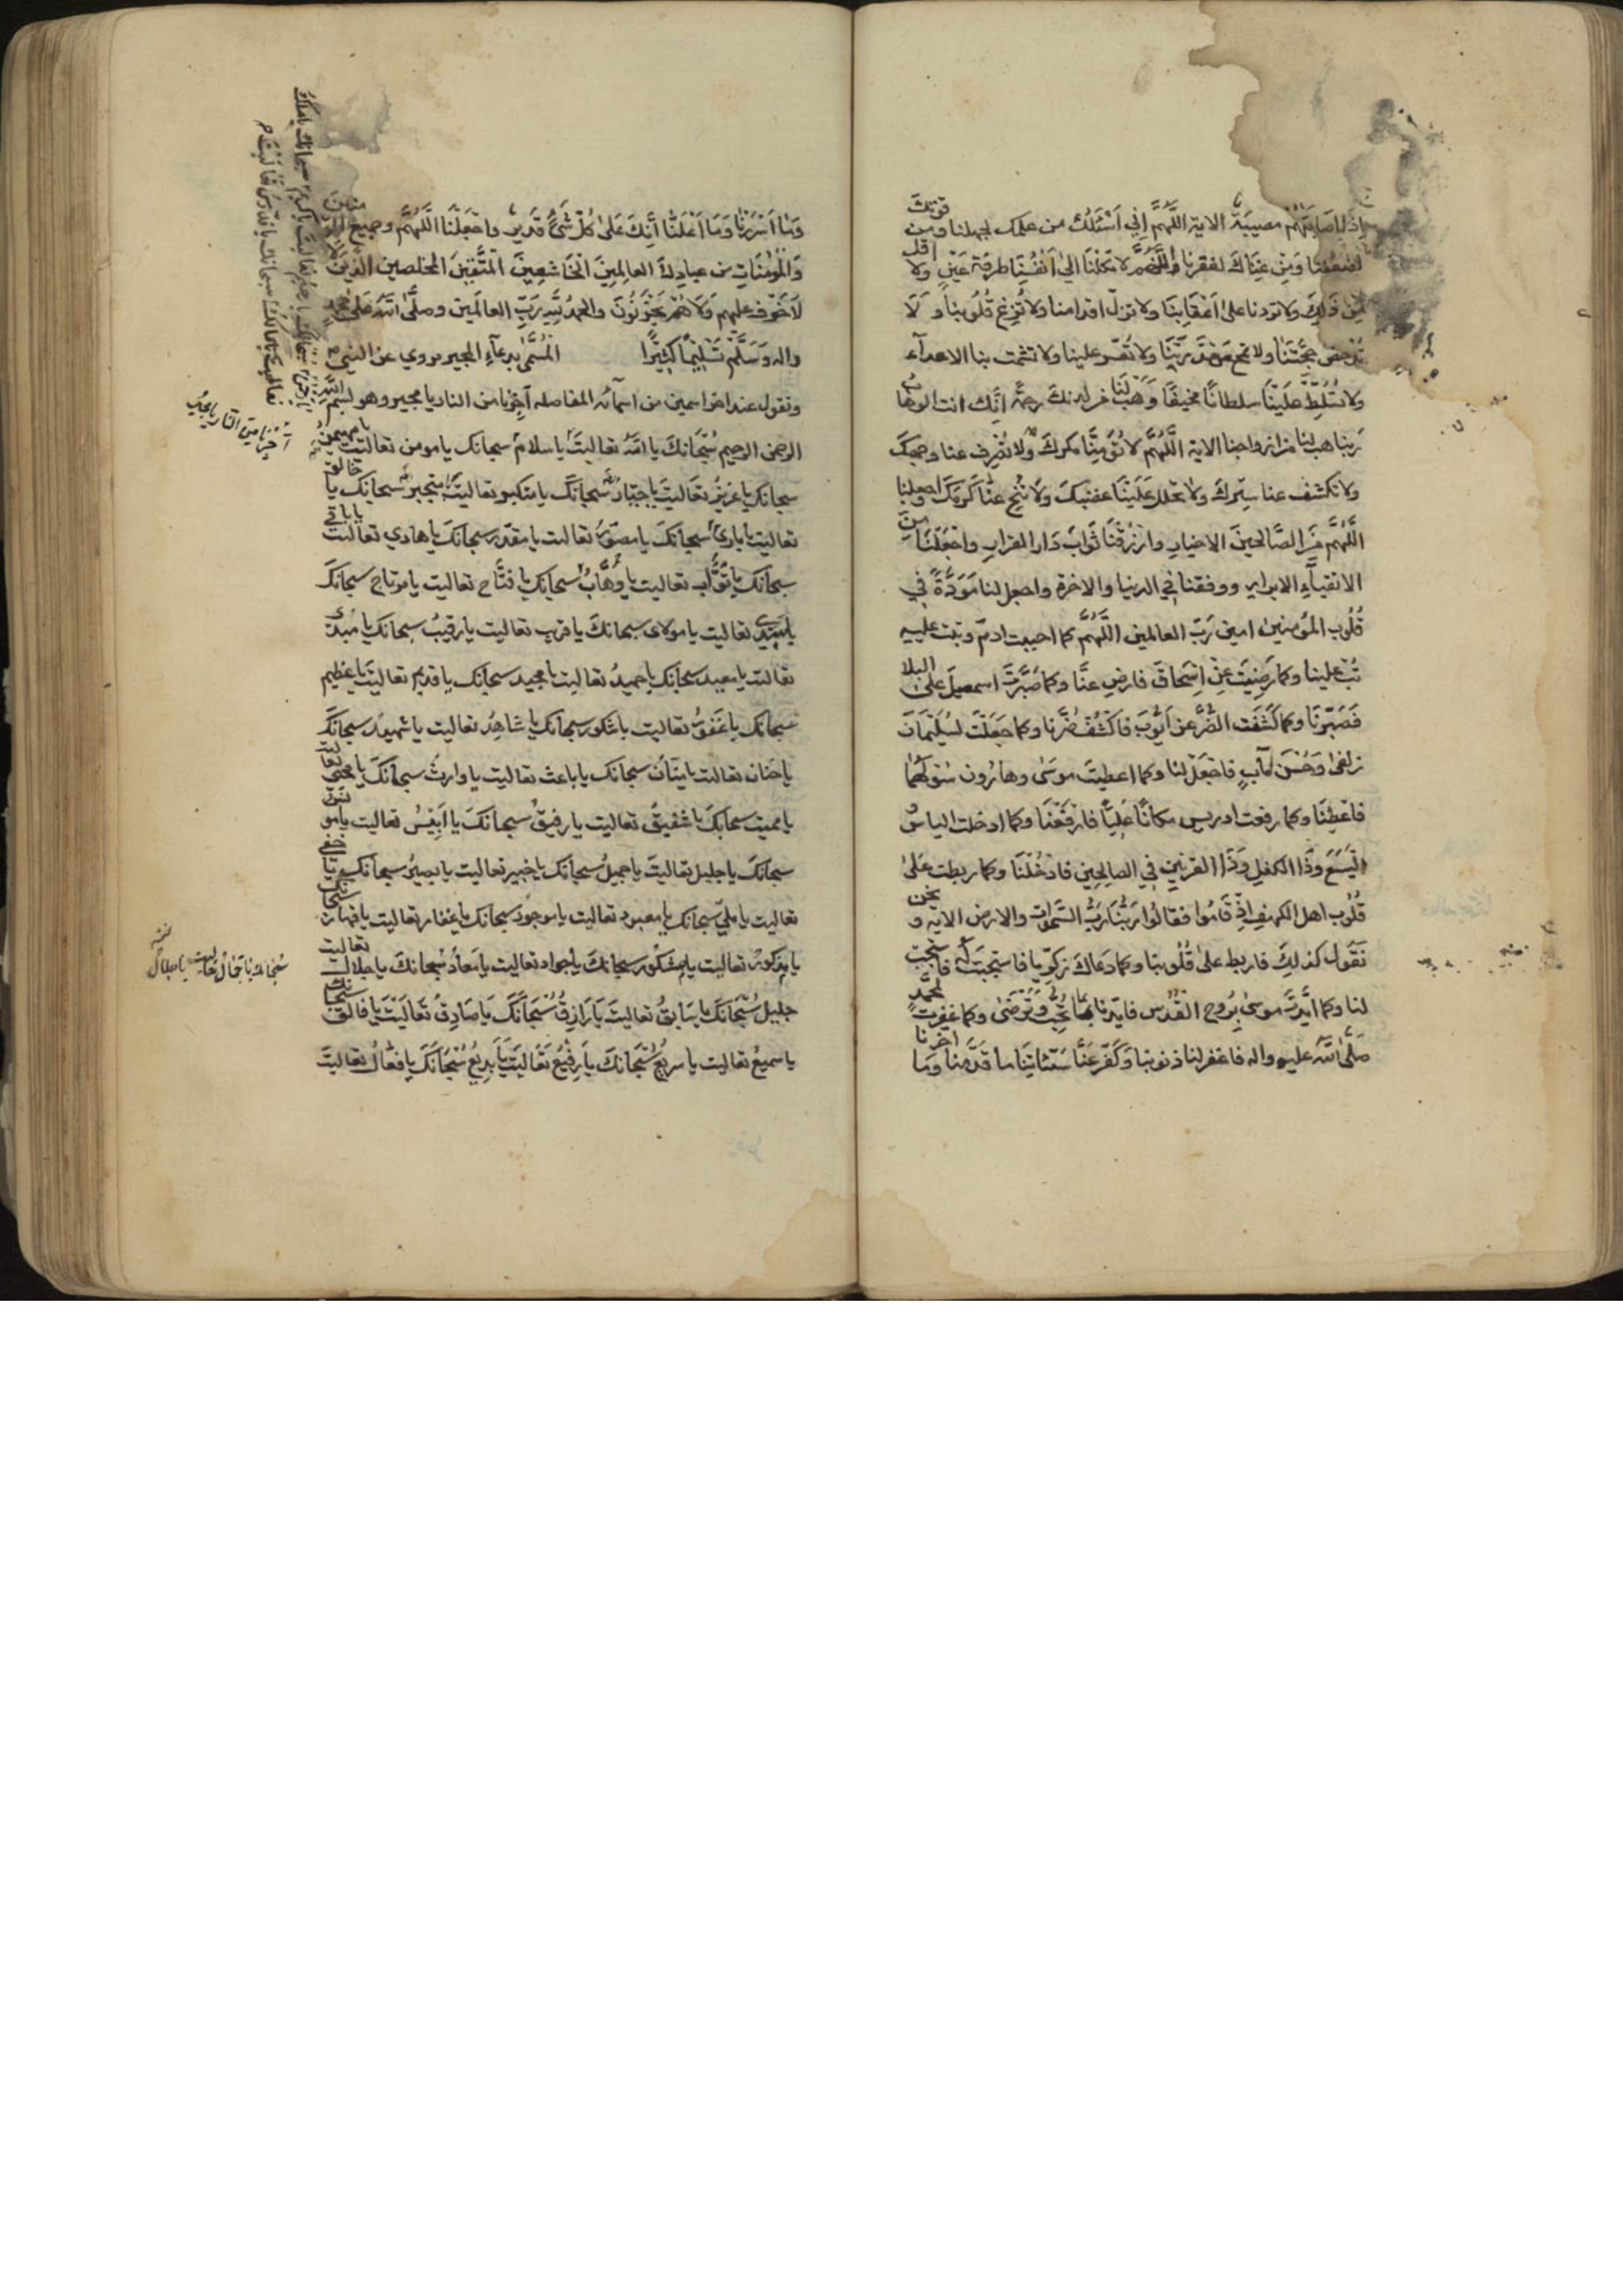 اذا اصابتهم مصيبة الاية اللهم اني اسئلك من علمك لجهلنا ومن قوتك
لضعفنا ومن غناك لفقرنا اللهم لا تكلنا الى انفسنا طرفة عين ولا اقل
من ذلك ولا تردنا على اعقابنا ولا تزل اقدامنا ولا تزغ قلوبنا و لا
تدحض حجتنا ولا تمح ولا تعسر علينا ولا تشمت بنا الاعداء
ولا تسلط علينا سلطانا مخيفا وهب لنا من لدنك رحمة انك انت الوهاب
ربنا هب لنا من ازواجنا الاية اللهم لا تؤمنا مكرك ولا تصرف عنا وجهك
ولا تكشف عنا سترك ولا تحلل علينا غضبك ولا تنح عنا كرمك واجعلنا
اللهم من الصالحين الاخيار وارزقنا ثواب دار القرار واجعلنا من
الاتقياء الابرار ووفقنا في الدنيا والاخرة واجعل لنا مودة في
قلوب المؤمنين امين رب العالمين اللهم كما اجتبيت ادم وتبت عليه
تب علينا وكما رضيت عن اسحاق فارض عنا وكما صبرت اسمعيل على البلا
فصبرنا وكما كشفت الضر عن ايوب فاكشف ضرنا وكما جعلت لسليمان
زلفى وحسن مآب فاجعل لنا وكما اعطيت موسى وهارون سؤلهما
فاعطنا وكما رفعت ادريس مكانا عليا فارفعنا وكما ادخلت الياس
اليسع وذا الكفل وذا القرنين في الصالحين فادخلنا وكما ربطت على
قلوب اهل الكهف اذ قاموا فقالوا ربنا رب السموات والارض الاية و نحن
نقول كذلك فاربط على قلوبنا وكما دعاك زكريا فاستجبت له فاستجب
لنا وكما ايدت موسى بروح القدس فايدنا بما تحب وترضى وكما غفرت لمحمد
صلى الله عليه واله فاغفر لنا ذنوبنا وكفر عنا سيئاتنا ما قدمنا وما اخرنا
وما اسررنا وما اعلنا انك على كل شيء قدير واجعلنا اللهم وجميع
والمؤمنات من عبادك العالمين الخاشعين المتقين المخلصين الذين
لا خوف عليهم ولا هم يحزنون والحمد لله رب العالمين وصلى الله على محمد
واله وسلم تسليما كثيرا المسمى بدعاء المجير مروي عن النبي
وتقول عند اخر اسمين من اسمائه المفاصلة اجرنا من النار يا مجير وهو بسم الله
الرحمن الرحيم سبحانك يا الله تعاليت يا سلام سبحانك يا مومن تعاليت يا مهيمن
سبحانك يا عزيز تعاليت يا جبار سبحانك يا متكبر تعاليت يا متجبر سبحانك يا خالق
تعاليت يا بارئ سبحانك يا مصور تعاليت يا مقدر سبحانك يا هادي تعاليت يا باقي
سبحانك يا تواب تعاليت يا وهاب سبحانك يا فتاح تعاليت يا مرتاح سبحانك
يا سيدي تعاليت يا مولاى سبحانك يا قريب تعاليت يا رقيب سبحانك يا مبدئ
تعاليت يا معيد سبحانك يا حميد تعاليت يا مجيد سبحانك يا قديم تعاليت يا عظيم
سبحانك يا غفور تعاليت يا شكور سبحانك يا شاهد تعاليت يا شهيد سبحانك
يا حنان تعاليت يا منان سبحانك يا باعث تعاليت يا وارث سبحانك يا محيي تعاليت
يا مميت سبحانك يا شفيق تعاليت يا رفيق سبحانك يا انيس تعاليت يا مونس
سبحانك يا جليل تعاليت يا جميل سبحانك يا خبير تعاليت يا بصير سبحانك يا خفي
تعاليت يا ملي سبحانك يا معبود تعاليت يا موجود سبحانك يا غفار تعاليت يا قهار سبحانك
يا مذكور تعاليت يا مشكور سبحانك يا جواد تعاليت يا معاذ سبحانك يا جلال تعاليت
جليل سبحانك يا سابق تعاليت يا رازق سبحانك يا صادق تعاليت يا فالق سبحانك
يا سميع تعاليت يا سريع سبحانك يا رفيع تعاليت يا بديع سبحانك يا فعال تعاليت
اجرنا من النار يا مجير
سبحانك يا جمال تعاليت يا جلال